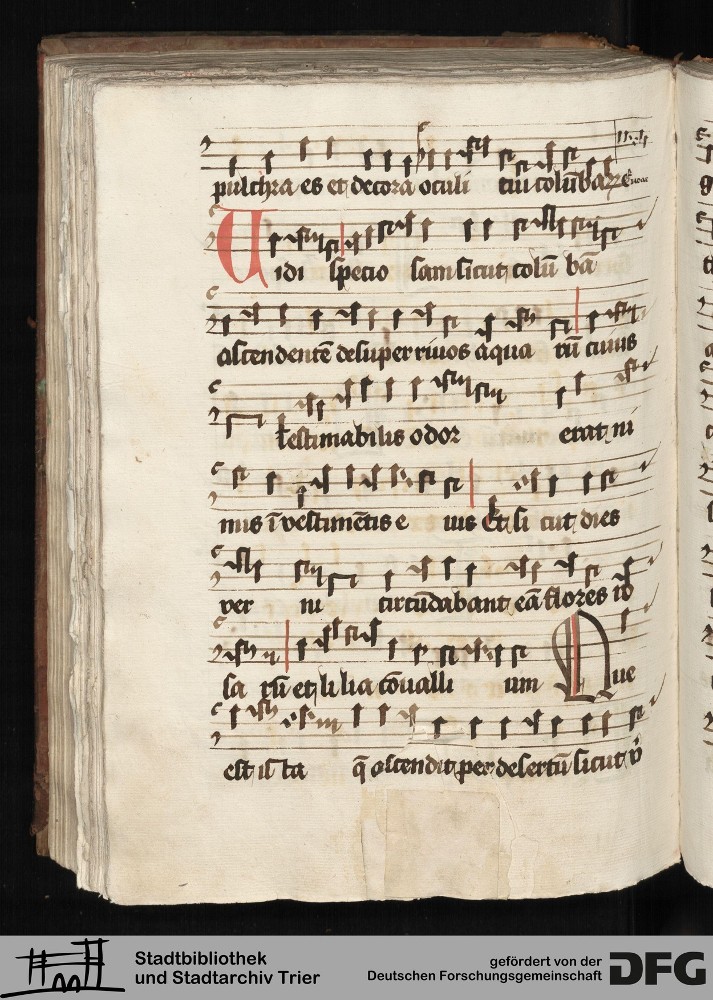 pulchra es et decora oculi tui colūbarꝝ Euouae
Vidi specio sam sicut colū bā
ascendentē desuper riuos aqua rū cuius
īestimabilis odor erat ni
mis ī vestimētis e ius Et si cut dies
ver ni circūdabant eā flores ro
sa rū et li lia cōualli um Que
est is ta q̄ ascendit per desertū sicut v̄
Stadtbibliothek
und Stadtarchiv Trier
gefördert von der
Deutschen Forschungsgemeinschaft
DFG